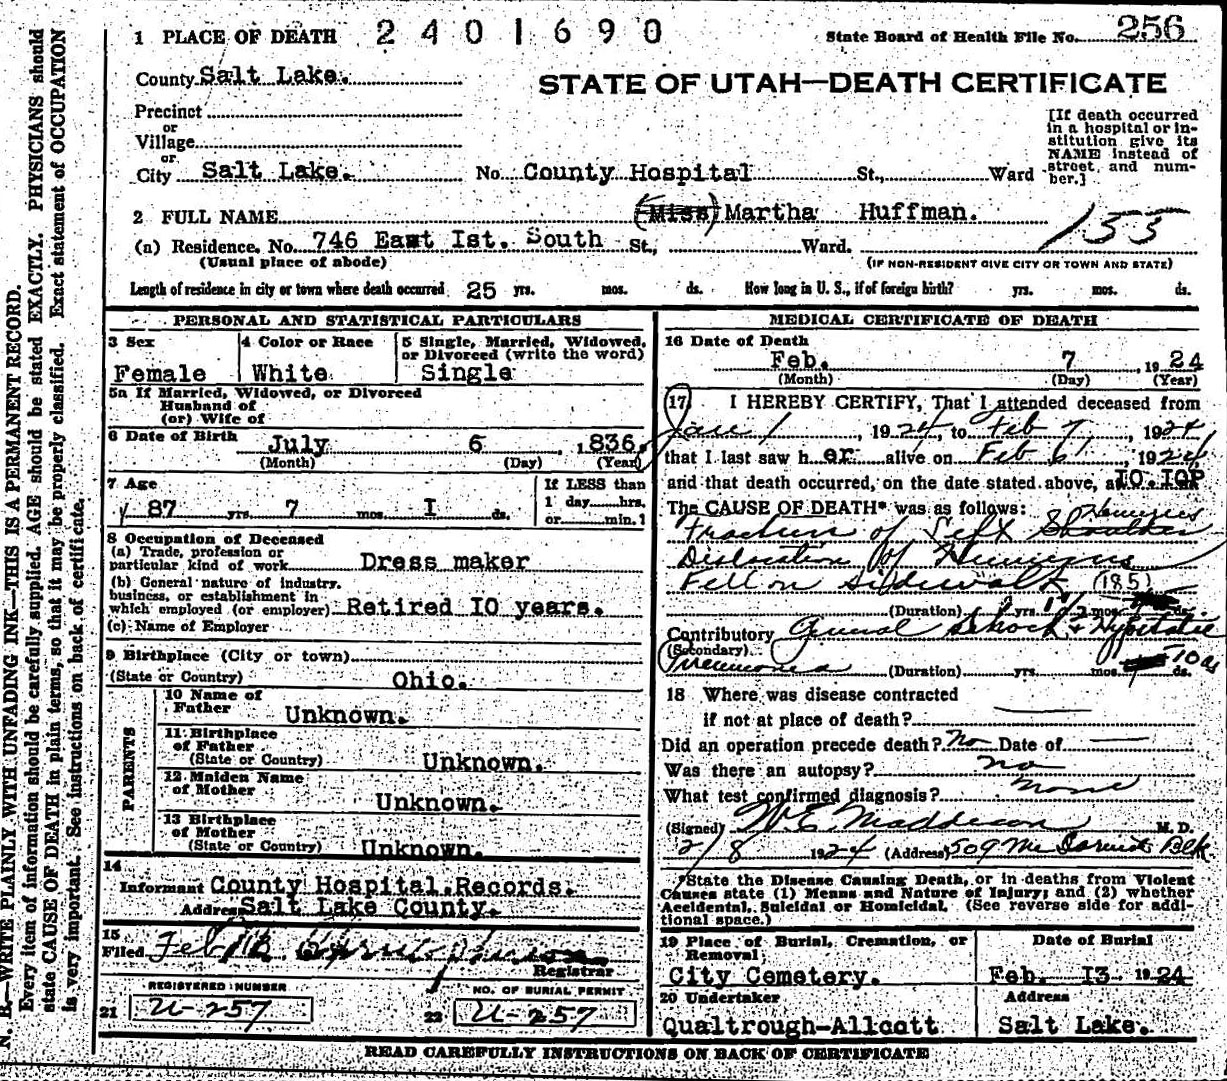 1 PLACE OF DEATH 2401690 State Board of Health File No. 256
County Salt Lake.
STATE OF UTAH—DEATH CERTIFICATE
Precinct
or
Village
or
City Salt Lake. No. County Hospital St., Ward
[If death occurred
in a hospital or in-
stitution give its
NAME instead of
street and num-
ber.]
2 FULL NAME (Miss) Martha Huffman. 155
(a) Residence. No. 746 East Ist. South St., Ward.
(Usual place of abode) (IF NON-RESIDENT GIVE CITY OR TOWN AND STATE)
Length of residence in city or town where death occurred 25 yrs. mos. ds. How long in U. S., if of foreign birth? yrs. mos. ds.
PERSONAL AND STATISTICAL PARTICULARS
3 Sex
Female
4 Color or Race
White
5 Single, Married, Widowed,
or Divorced (write the word)
Single
5a If Married, Widowed, or Divorced
Husband of
(or) Wife of
6 Date of Birth July 6 1836
(Month) (Day) (Year)
7 Age
87 yrs. 7 mos. I ds.
If LESS than
1 day hrs.
or min.?
8 Occupation of Deceased
(a) Trade, profession or
particular kind of work Dress maker
(b) General nature of industry,
business, or establishment in
which employed (or employer) Retired IO years.
(c) Name of Employer
9 Birthplace (City or town)
(State or Country) Ohio.
PARENTS
10 Name of
Father Unknown.
11 Birthplace
of Father
(State or Country) Unknown.
12 Maiden Name
of Mother Unknown.
13 Birthplace
of Mother
(State or Country) Unknown.
14
Informant County Hospital Records.
Address Salt Lake County.
15
Filed Feb
Registrar
REGISTERED NUMBER
21 U-257
NO. OF BURIAL PERMIT
22 U-257
MEDICAL CERTIFICATE OF DEATH
16 Date of Death
Feb. 7, 1924
(Month) (Day) (Year)
17 I HEREBY CERTIFY, That I attended deceased from
Jan 1, 1924, to Feb 7, 1924
that I last saw her alive on Feb 6, 1924
and that death occurred, on the date stated above, at IO.IOP
The CAUSE OF DEATH* was as follows:
Fracture of Left Shoulder Humerus
Dislocation of Humerus
Fell on sidewalk (185)
(Duration) yrs. mos. ds.
Contributory General Shock & Hypostatic
(Secondary)
Pneumonia (Duration) yrs. mos. 10 ds.
18 Where was disease contracted
if not at place of death?
Did an operation precede death? No Date of
Was there an autopsy? no
What test confirmed diagnosis? none
(Signed) W E Maddison M. D.
2/8 1924 (Address) 509 McDornick Blk
*State the Disease Causing Death, or in deaths from Violent
Causes state (1) Means and Nature of Injury; and (2) whether
Accidental, Suicidal or Homicidal. (See reverse side for addi-
tional space.)
19 Place of Burial, Cremation, or
Removal
City Cemetery.
Date of Burial
Feb. I3 1924
20 Undertaker
Qualtrough-Allcott
Address
Salt Lake.
READ CAREFULLY INSTRUCTIONS ON BACK OF CERTIFICATE
N. B.—WRITE PLAINLY WITH UNFADING INK—THIS IS A PERMANENT RECORD.
Every item of information should be carefully supplied. AGE should be stated EXACTLY. PHYSICIANS should
state CAUSE OF DEATH in plain terms, so that it may be properly classified. Exact statement of OCCUPATION
is very important. See instructions on back of certificate.